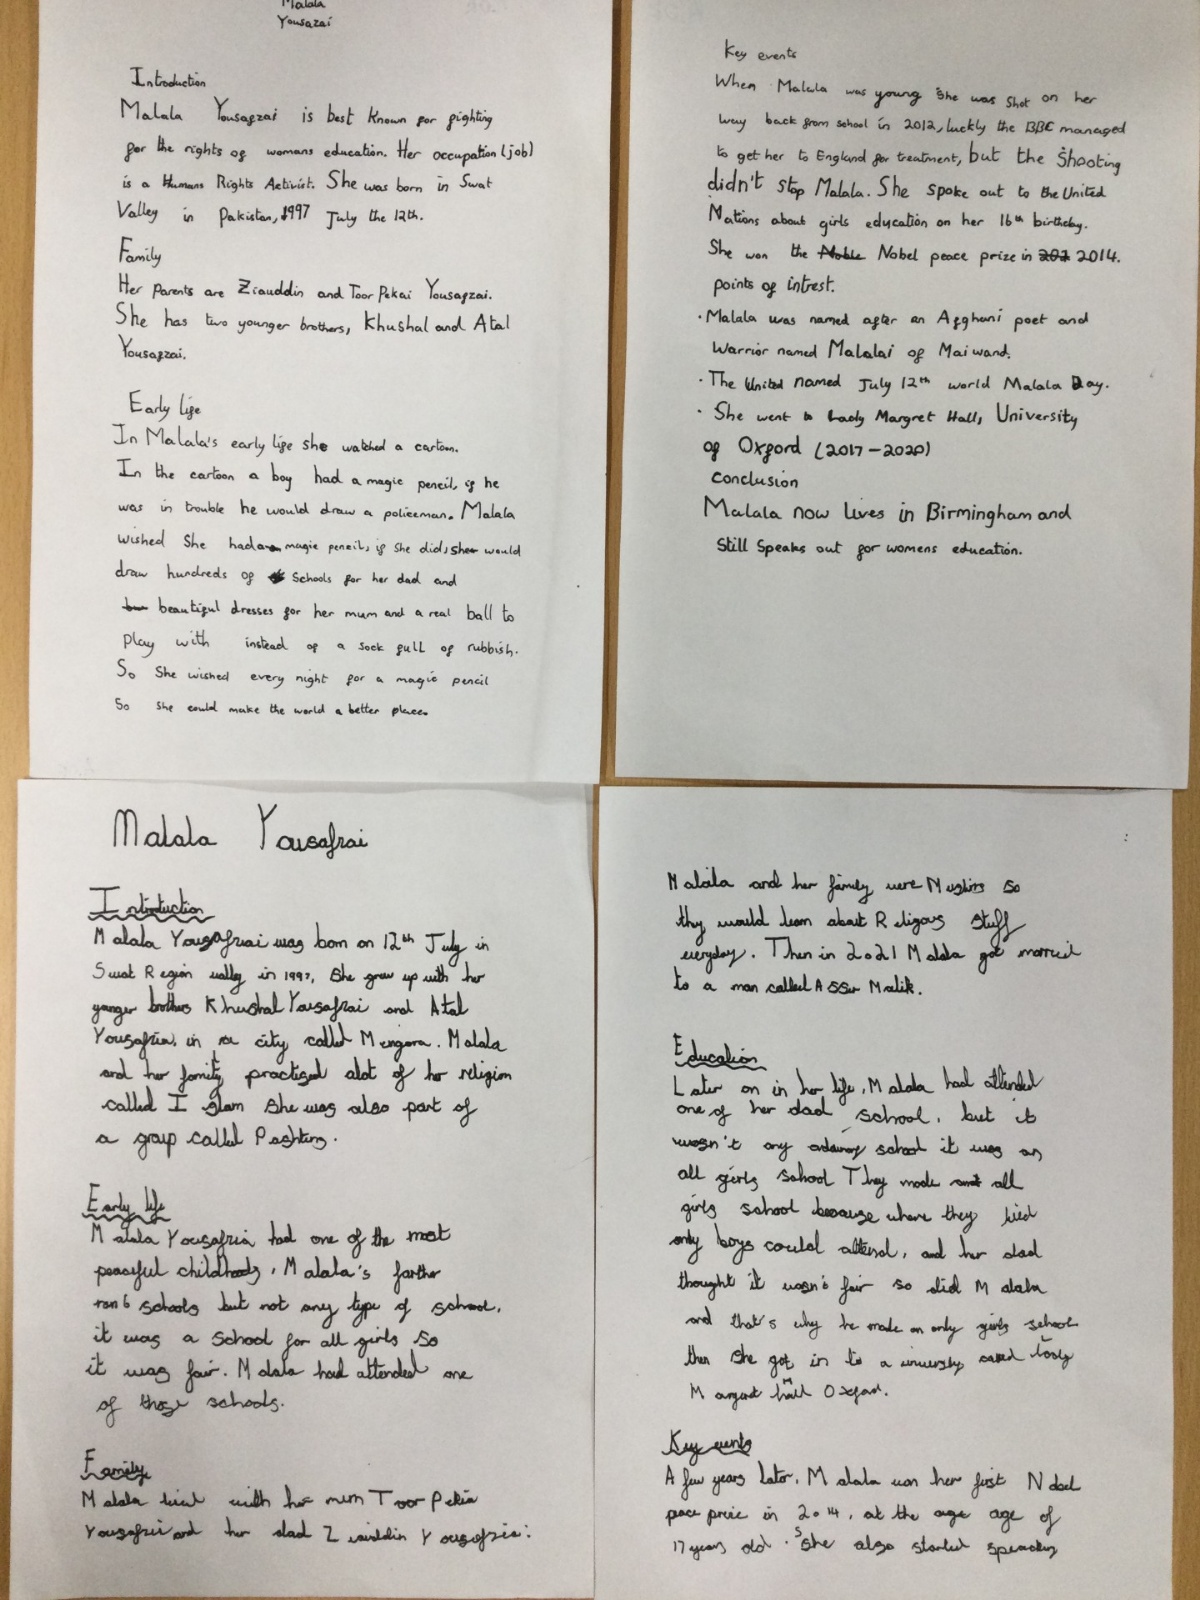 Malala
Yousazai
Introduction
Malala Yousagzai is best known for fighting
for the rights of womans education. Her occupation (job)
is a Humans Rights Activist. She was born in Swat
Valley in Pakistan, 1997 July the 12th.
Family
Her parents are Ziauddin and Toor Pekai Yousafzai.
She has two younger brothers, Khushal and Atal
Yousafzai.
Early life
In Malala's early life she watched a cartoon.
In the cartoon a boy had a magic pencil, if he
was in trouble he would draw a policeman. Malala
wished She had a magic pencil, if She did, she would
draw hundreds of Schools for her dad and
beautiful dresses for her mum and a real ball to
play with instead of a sock full of rubbish.
So She wished every night for a magic pencil
So She could make the world a better place.
Key events
When Malala was young She was Shot on her
way back from school in 2012, luckly the BBC managed
to get her to England for treatment, but the Shooting
didn't stop Malala. She spoke out to the United
Nations about girls education on her 16th birthday.
She won the Noble Nobel peace prize in 201 2014.
points of intrest.
· Malala was named after an Afghani poet and
Warrior named Malalai of Maiwand.
· The United named July 12th world Malala Day.
· She went to Lady Margret Hall, University
of Oxford (2017-2020)
Conclusion
Malala now lives in Birmingham and
Still Speaks out for womens education.
Malala Yousafzai
Introduction
Malala Yousafzai was born on 12th July in
Swat Region vally in 1997, She grew up with her
yonger brothers Khushal Yousafzai and Atal
Yousafzia, in a city called Mengora. Malala
and her family practised alot of her religion
called Islam She was also part of
a group called Pashtins.
Early life
Malala Yousafzia had one of the most
peaceful childhoods, Malala's farther
ran 6 schools but not any type of school,
it was a school for all girls so
it was fair. Malala had attended one
of those schools.
Family
Malala lived with her mum Toor Pekia
Yousafzai and her dad Yousafzia.
Malala and her family were Muslims So
thy would learn about Religous stuff
everyday. Then in 2021 Malala got married
to a man called Asser Malik.
Education
Later on in her life, Malala had attended
one of her dad school, but it
wasn't any ordinary school it was an
all girls school They made all
girls school because where they lived
only boys could attend, and her dad
thought it wasn't fair so did Malala
and that's why he made an only girls school
then She got in to a called Lady
Margaret hall Oxford.
Key events
A few years later, Malala won her first Nobel
peace prize in 2014, at the age age of
17 years old. She also started speaking